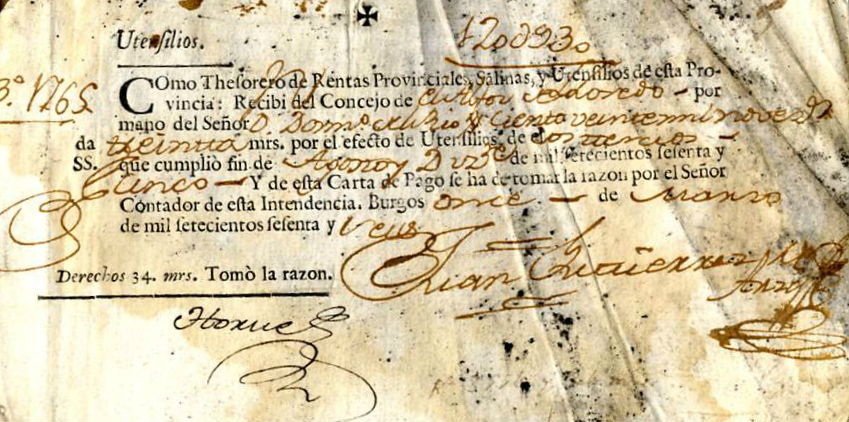 ✠
Utensilios. 120δ930
3º. 1765.
COmo Thesorero de Rentas Provinciales, Salinas, y Utensilios de esta Pro-
vincia: Recibi del Concejo de por
mano del Señor D. Ciento veinte mil novez.
da treintta mrs. por el efecto de Utensilios, de dos tercios
SS. que cumpliò fin de Agosto y Diz.e de mil setecientos sesenta y
Cinco Y de esta Carta de Pago se ha de tomar la razon por el Señor
Contador de esta Intendencia. Burgos once de Marzo
de mil setecientos sesenta y seis
Juan Gutierrez
Derechos 34. mrs. Tomò la razon.